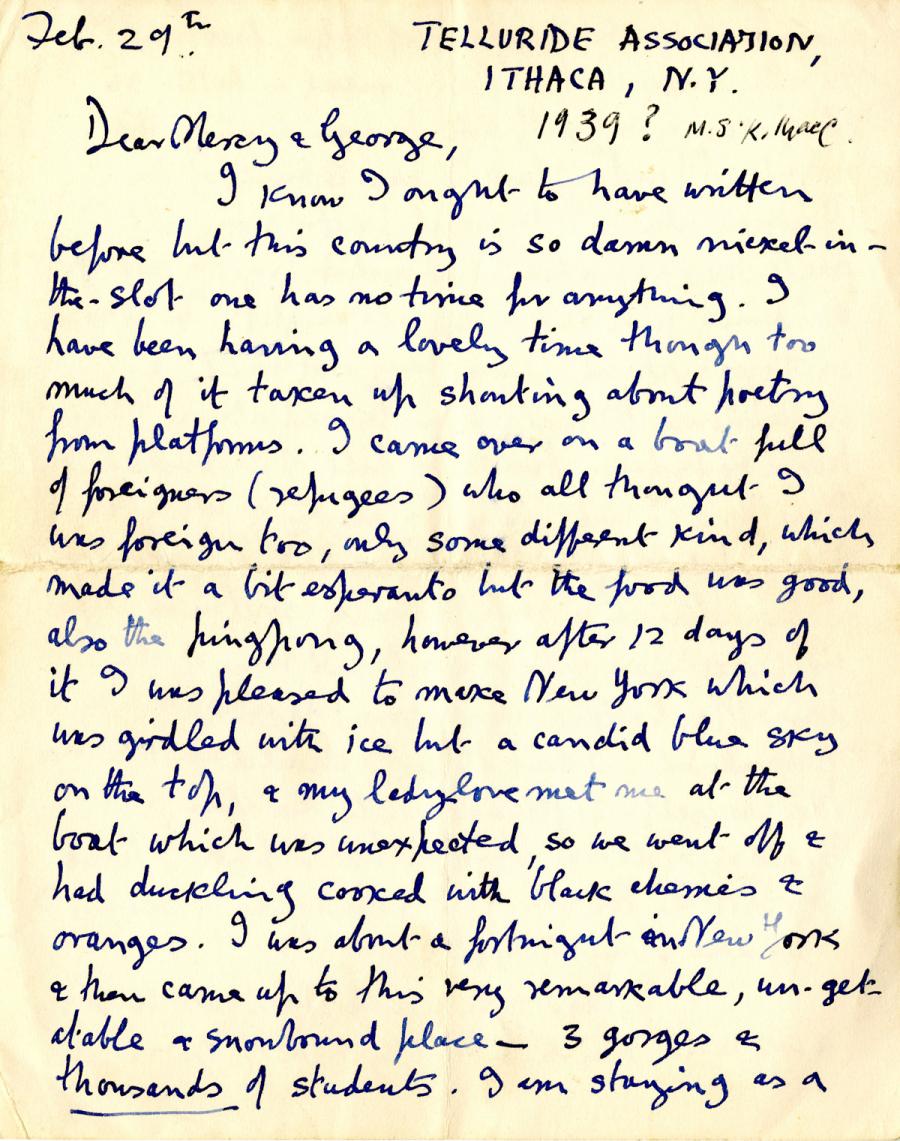 Feb. 29th.
TELLURIDE ASSOCIATION,
ITHACA, N.Y.
1939? M.S.K.
Dear Mercy & George,
I know I ought to have written
before but this country is so damn nickel-in-
the-slot one has no time for anything. I
have been having a lovely time though too
much of it taken up shouting about poetry
from platforms. I came over on a boat full
of foreigners (refugees) who all thought I
was foreign too, only some different kind, which
made it a bit esperanto but the food was good,
also the pingpong, however after 12 days of
it I was pleased to make New York which
was girdled with ice but a candid blue sky
on the top, & my ladylove met me at the
boat which was unexpected, so we went off &
had duckling cooked with black cherries &
oranges. I was about a fortnight in New York
& then came up to this very remarkable, un-get-
atable & snowbound place — 3 gorges &
thousands of students. I am staying as a